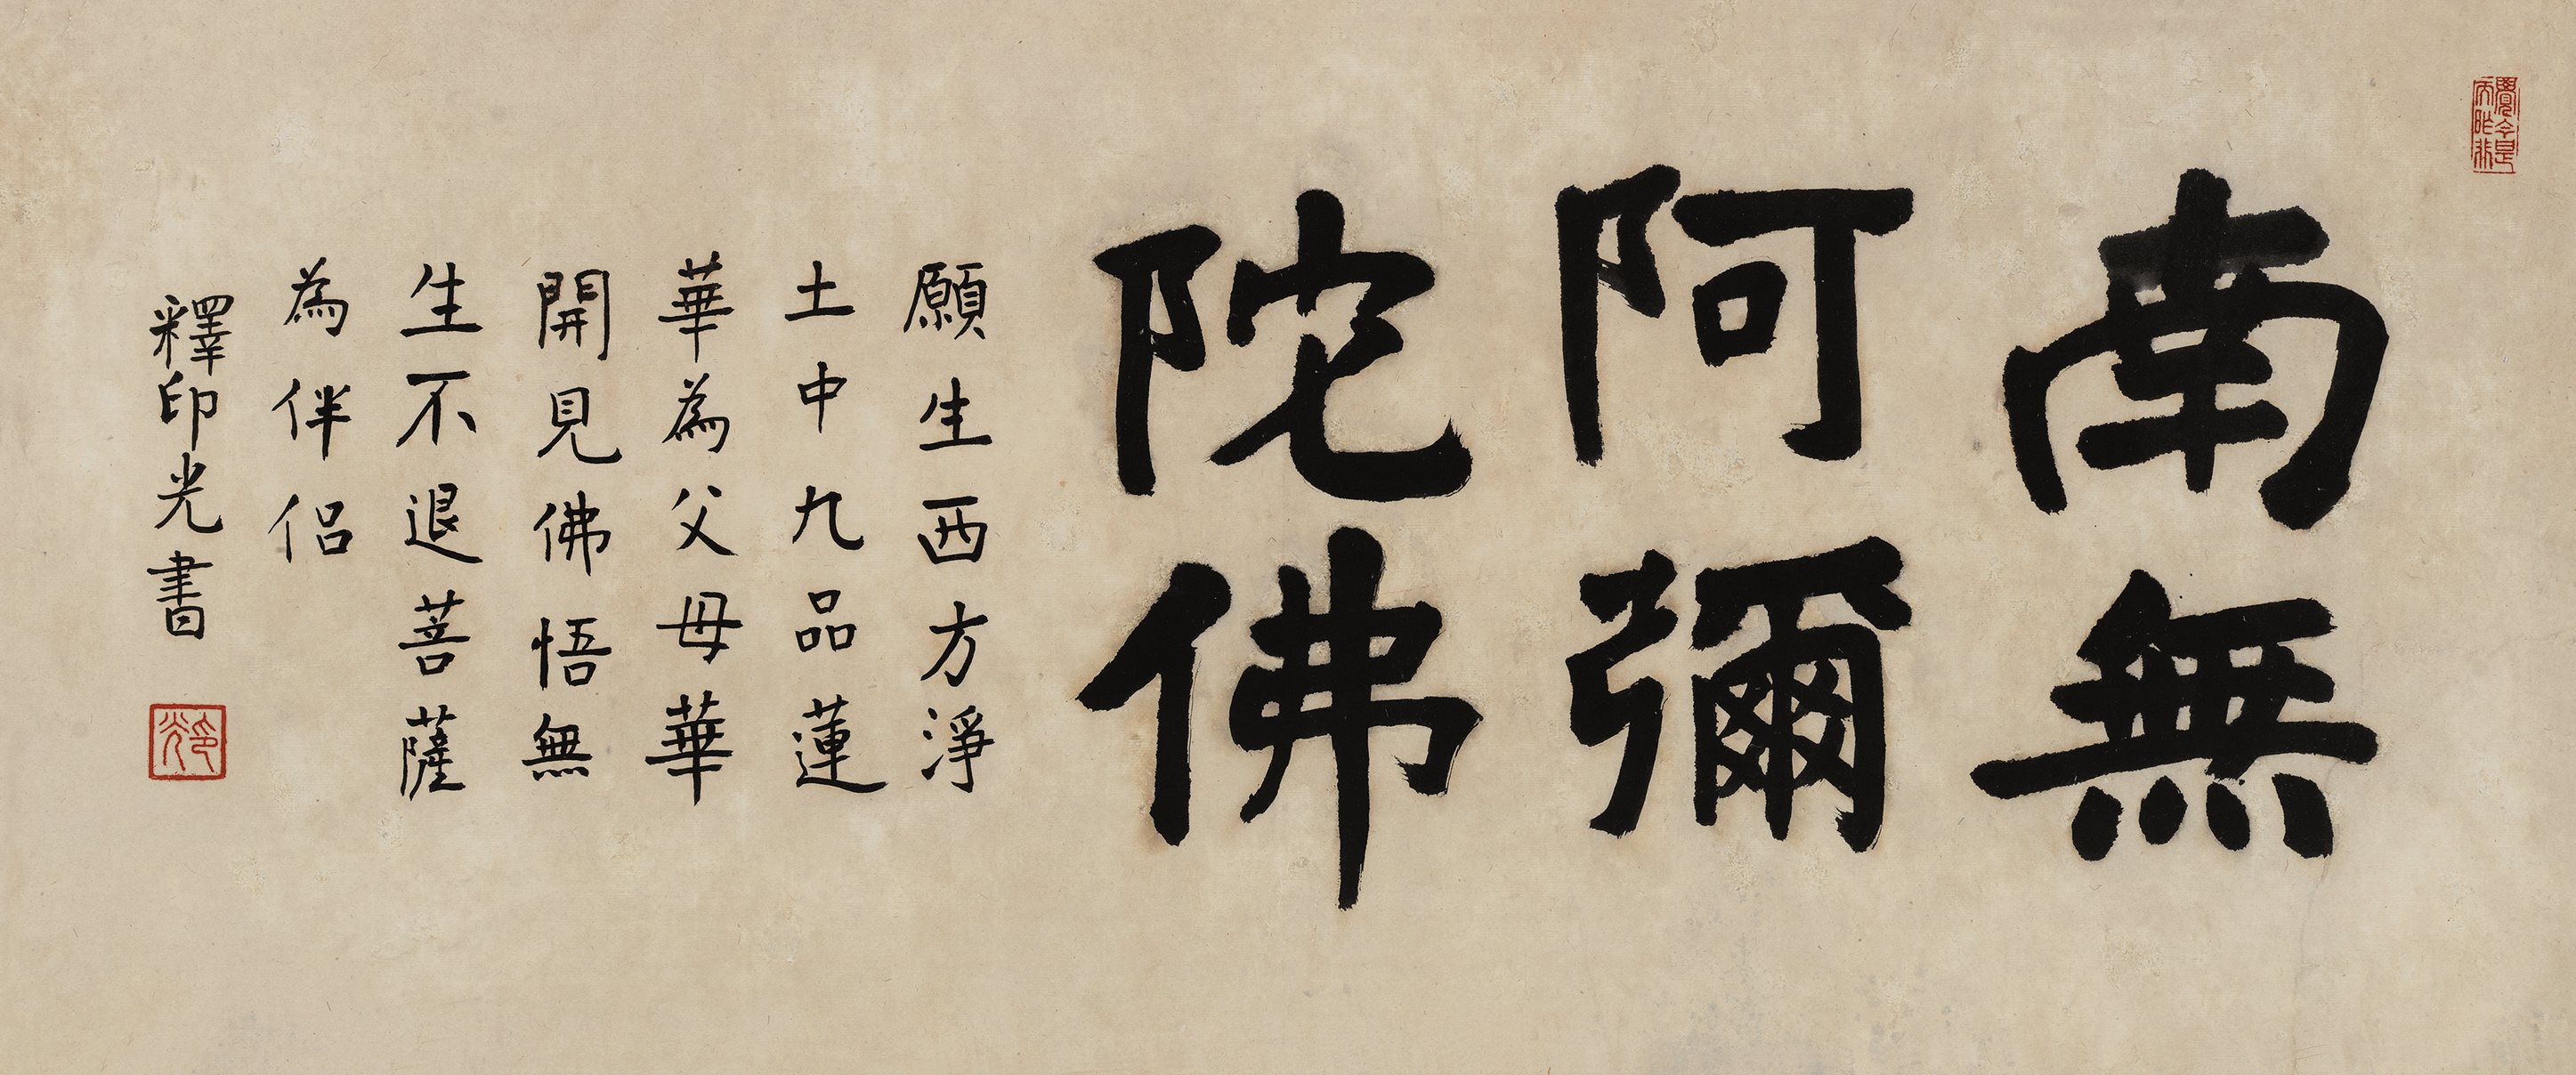 南無
阿彌
陀佛
願生西方淨
土中九品蓮
華為父母華
開見佛悟無
生不退菩薩
為伴侶
釋印光書
印光
覺今是
而昨非